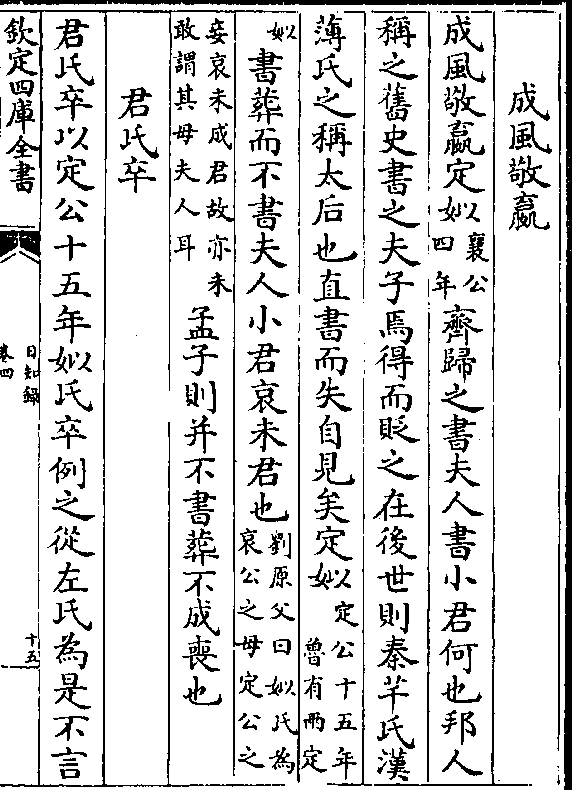 成風敬嬴
成風敬嬴定姒襄公四年齊歸之書夫人書小君何也邦人
稱之舊史書之夫子焉得而貶之在後世則秦芊氏漢
薄氏之稱太后也直書而失自見矣定姒定公十五年魯有兩定
姒書葬而不書夫人小君哀未君也劉原父曰姒氏為哀公之母定公之
妾哀未成君故亦未敢謂其母夫人耳孟子則并不書葬不成喪也
君氏卒
君氏卒以定公十五年姒氏卒例之從左氏為是不言
欽定四庫全書
日知錄
卷四
十五